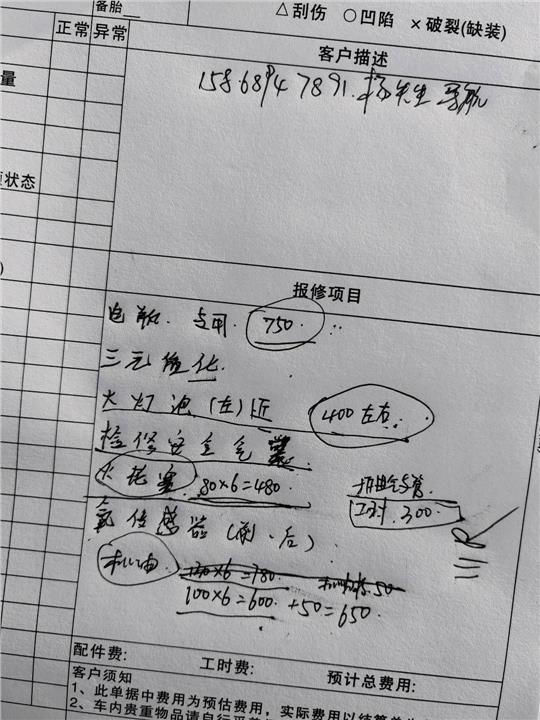 备胎
△刮伤 ○凹陷 ×破裂(缺装)
正常 异常
客户描述
量
状态
报修项目
电瓶. 750
三元催化
大灯泡(左)近 400左右
检修安全气囊
火花塞 80×6=480
工时.300
氧传感器(前.后)
机油 130×6=780
100×6=600 +50=650
配件费: 工时费: 预计总费用:
客户须知
1、此单据中费用为预估费用,实际费用以结算单
2、车内贵重物品请自行